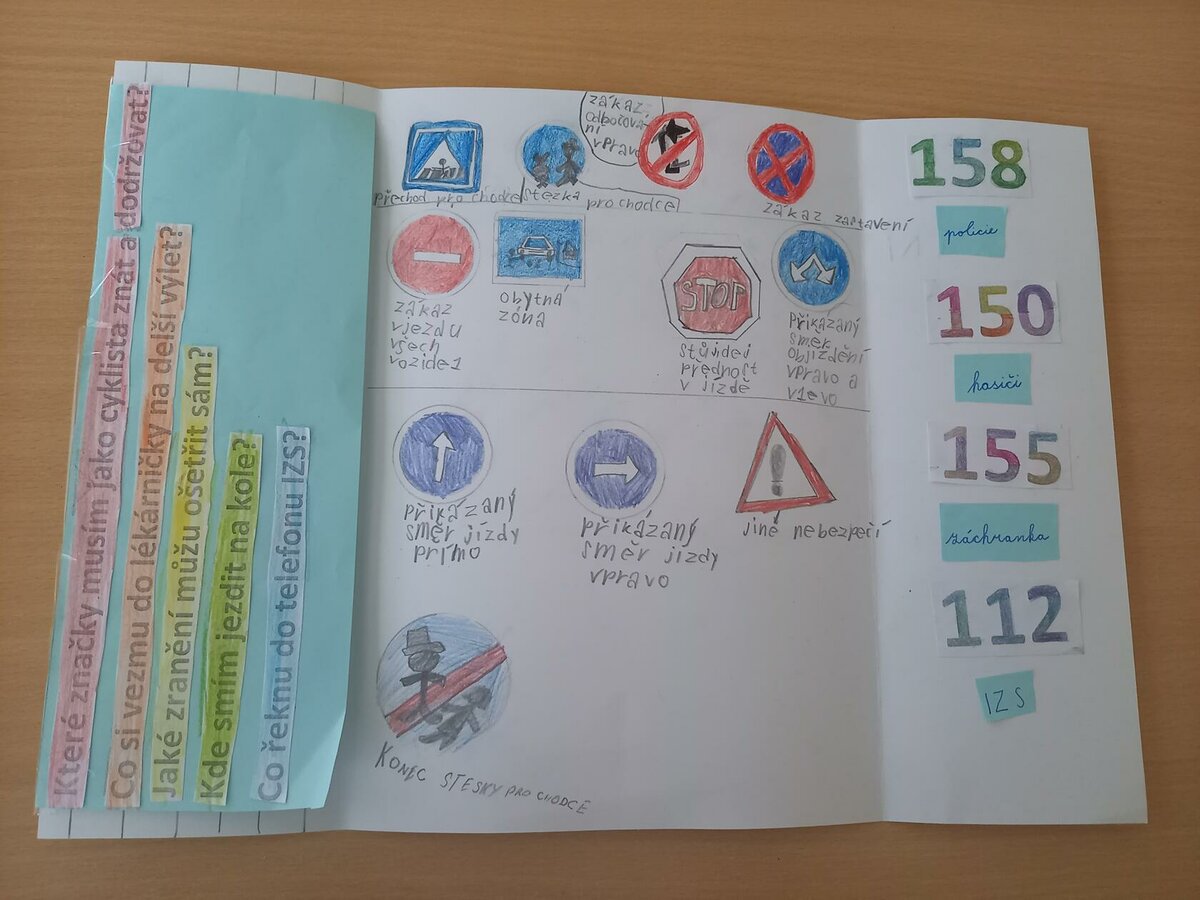 Které značky musím jako cyklista znát a dodržovat?
Co si vezmu do lékárničky na delší výlet?
Jaké zranění můžu ošetřit sám?
Kde smím jezdit na kole?
Co řeknu do telefonu IZS?
přechod pro chodce
stezka pro chodce
zákaz
odbočová
ní
vpravo
zákaz zastavení
zákaz
vjezdu
všech
vozidel
obytná
zóna
STOP
stůjdej
přednost
v jízdě
Přikázaný
směr
objíždění
vpravo a
vlevo
přikázaný
směr jízdy
přímo
přikázaný
směr jízdy
vpravo
jiné nebezpečí
KONEC STESKY PRO CHODCE
158
policie
150
hasiči
155
záchranka
112
IZS